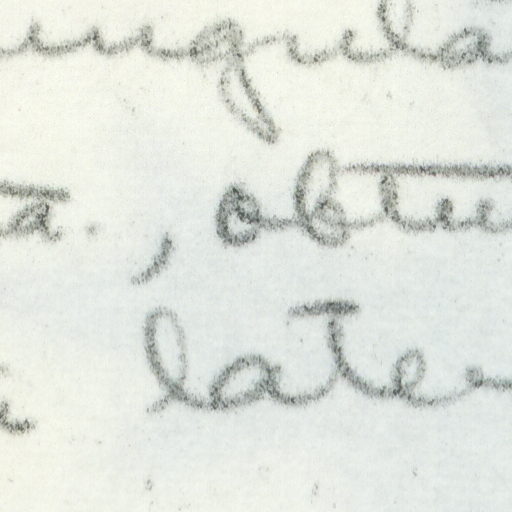 ungula
ta., obtu
later